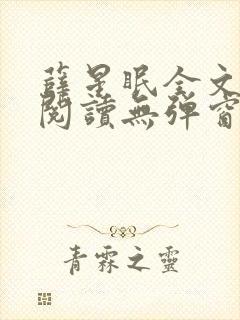 薛星眠全文
閱讀無彈窗
青霖之靈